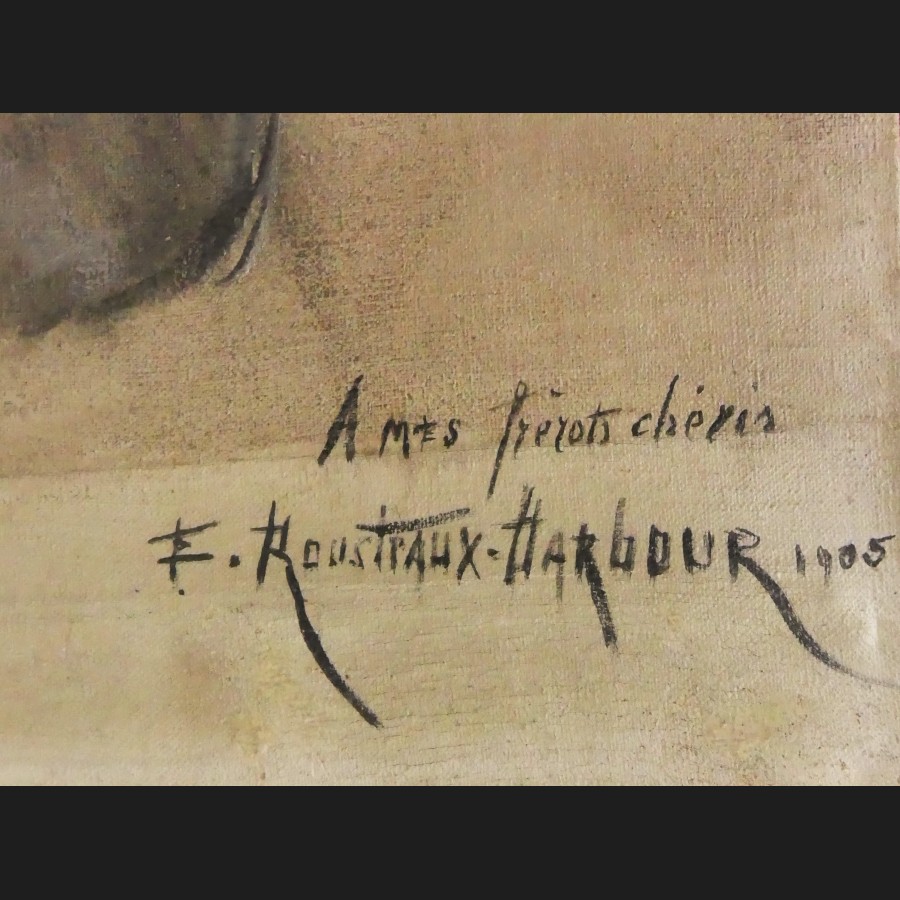 A mes frérots chéris
E. Rousteaux-Harbour 1905